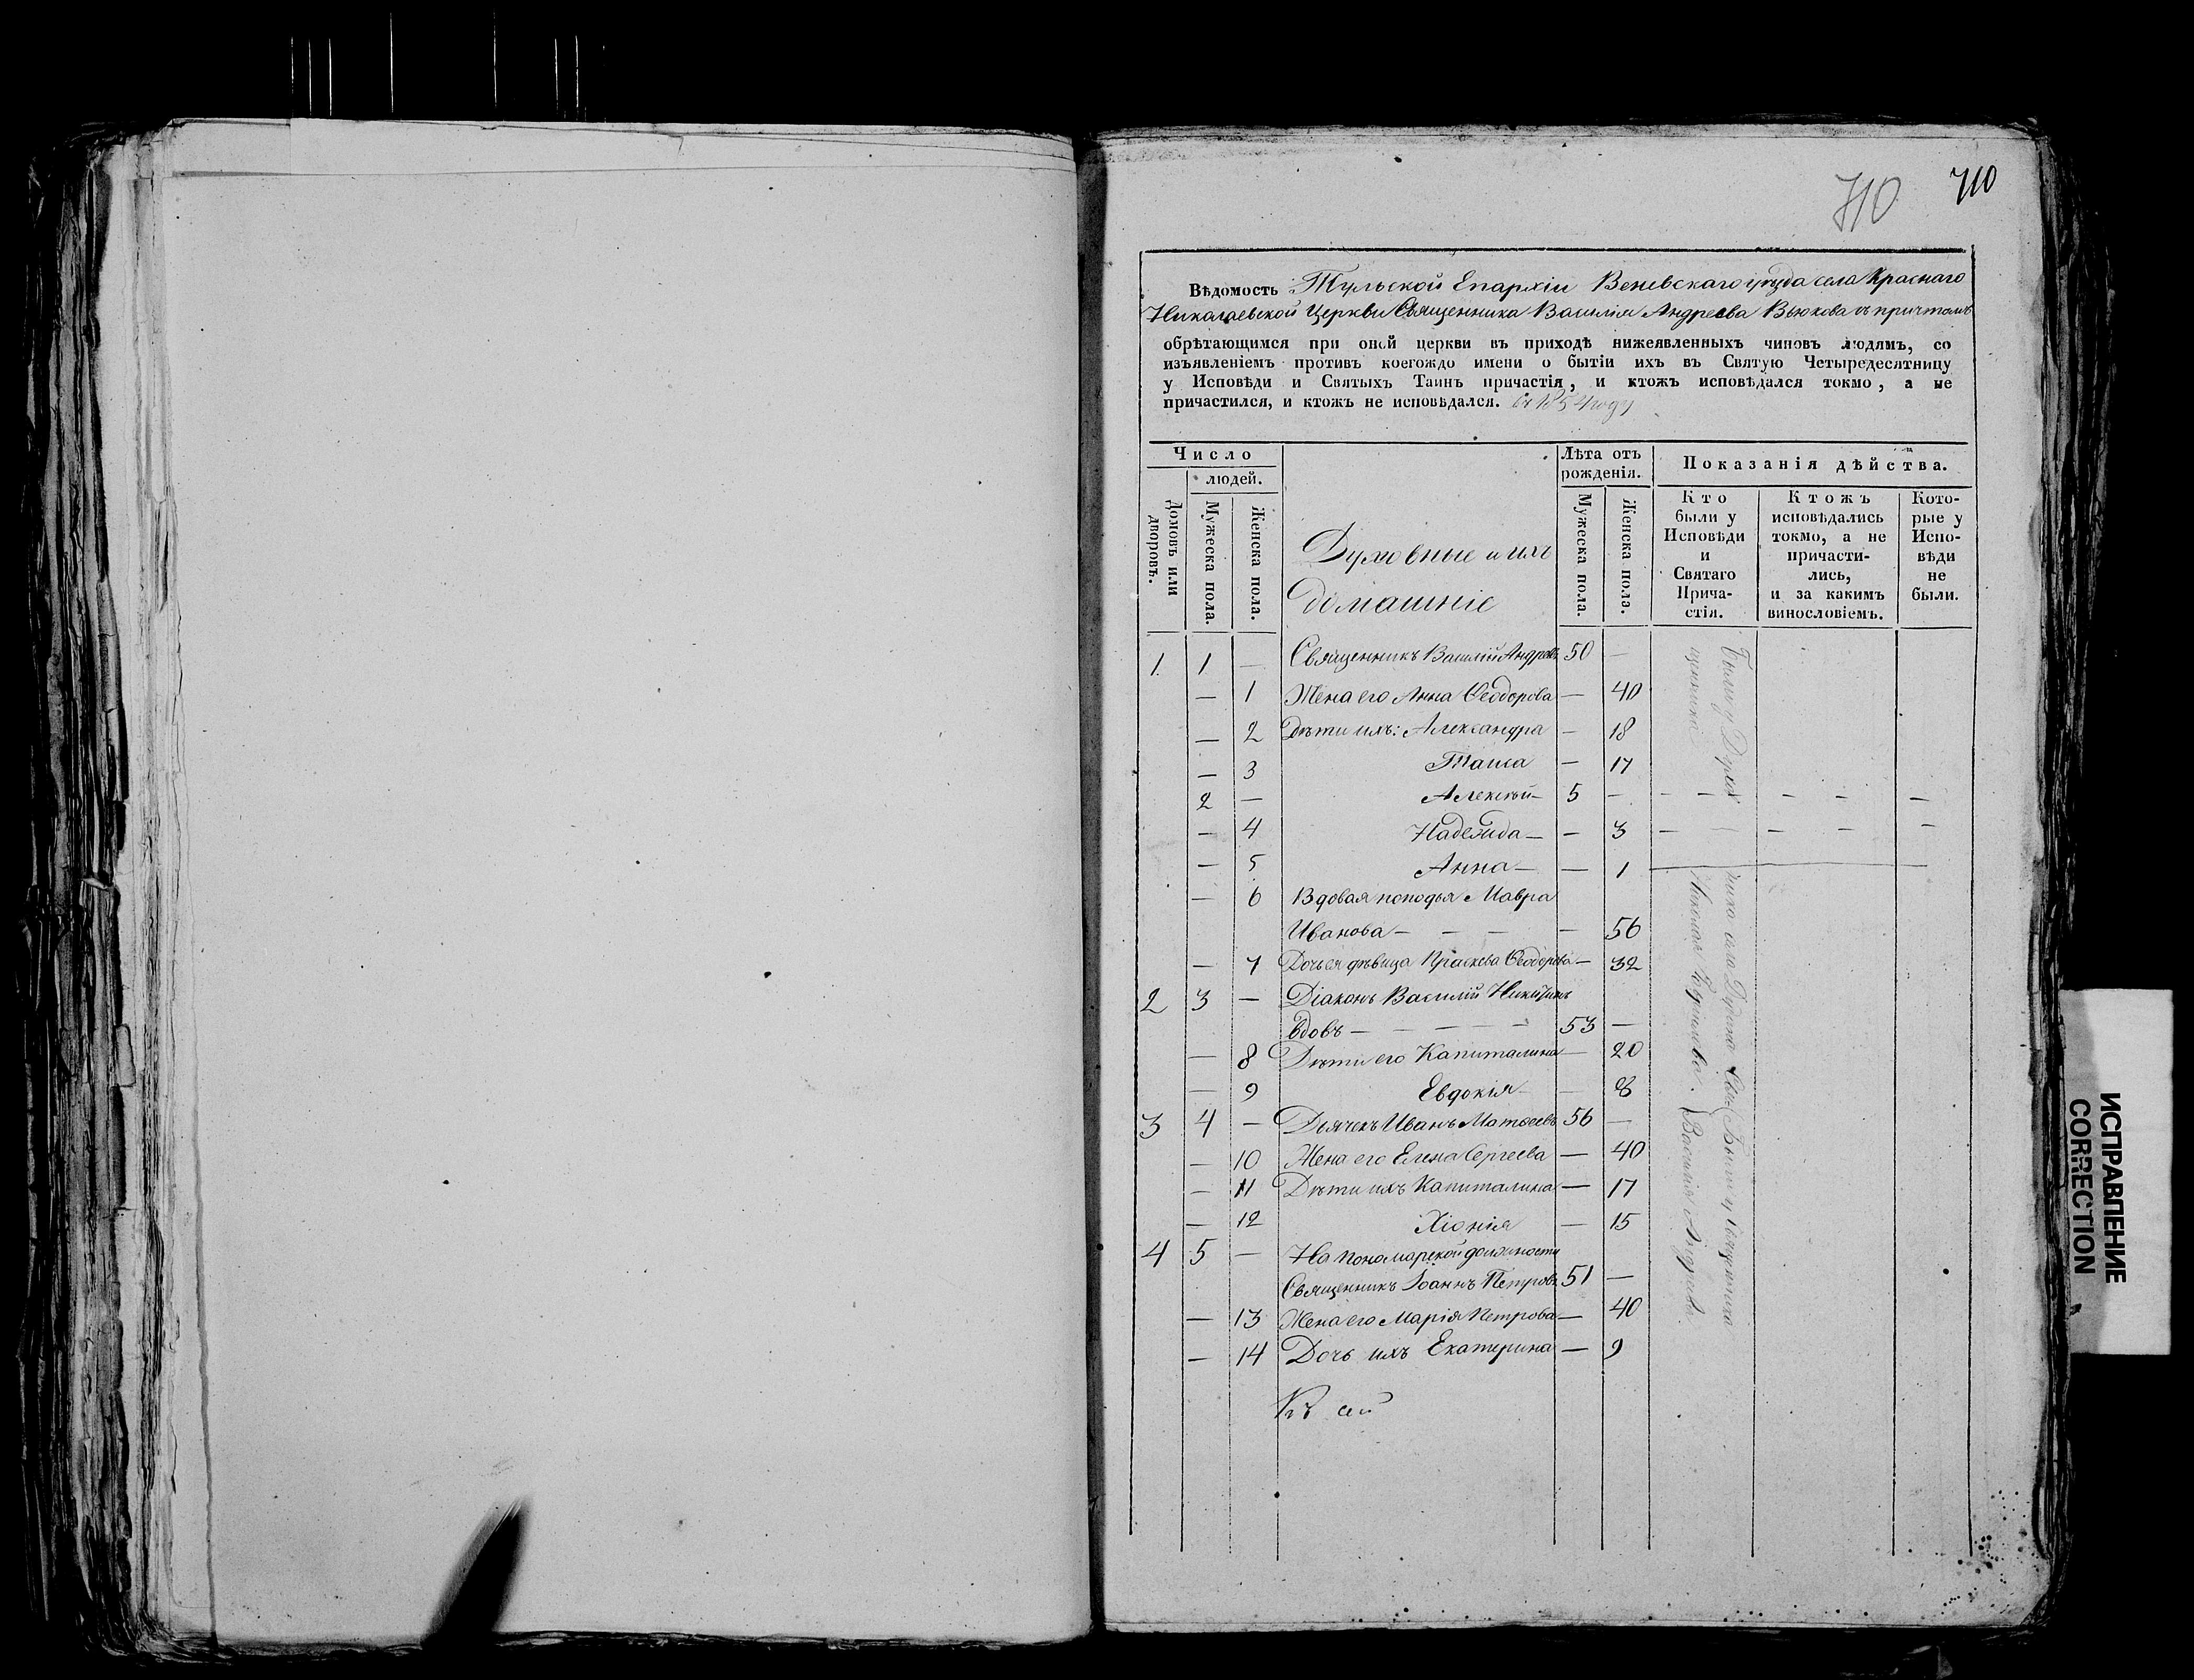 710 710
Вѣдомость Тульской Епархіи Веневскаго уѣзда села Краснаго
Николаевской Церкви Священника Василія Андреева Вьюкова съ причтомъ
обрѣтающимся при оной церкви въ приходѣ нижеявленныхъ чиновъ людямъ, со
изъявленіемъ противъ коегождо имени о бытіи ихъ въ Святую Четыредесятницу
у Исповѣди и Святыхъ Таинъ причастія, и ктожъ исповѣдался токмо, а не
причастился, и ктожъ не исповѣдался. въ 1854 году
Число
людей.
Домовъ или дворовъ.
Мужеска пола.
Женска пола.
Духовные и ихъ
домашніе
Лѣта отъ
рожденія.
Мужеска пола.
Женска пола.
Показанія дѣйства.
Кто
были у
Исповѣди
и
Святаго
Прича-
стія.
Ктожъ
исповѣдались
токмо, а не
причасти-
лись,
и за какимъ
винословіемъ.
Кото-
рые у
Испо-
вѣди
не
были.
1 1 — Священникъ Василій Андреевъ 50 —
— 1 Жена его Анна Ѳеодорова — 40
— 2 Дѣти ихъ: Александра — 18
— 3 Таиса — 17
2 — Алексѣй — 5 — — — — — —
— 4 Надежда — — 3 — — — —
— 5 Анна — — 1
— 6 Вдовая попадья Мавра
Иванова — — — — 56
— 7 Дочь ея дѣвица Праскева Ѳеодорова — 32
2 3 — Діаконъ Василій Никитинъ
вдовъ — — — — — 53 —
— 8 Дѣти его Капиталина — 20
— 9 Евдокія — — 8
3 4 — Дьячекъ Иванъ Матѳеевъ 56 —
— 10 Жена его Елена Сергеева — 40
— 11 Дѣти ихъ Капиталина — 17
— 12 Хіонія — 15
4 5 — На пономарской должности
Священникъ Іоаннъ Петровъ 51 —
— 13 Жена его Марія Петрова — 40
— 14 Дочь ихъ Екатерина — 9
Къ сей
Были у Священника
Василія Андреева
ИСПРАВЛЕНИЕ
CORRECTION